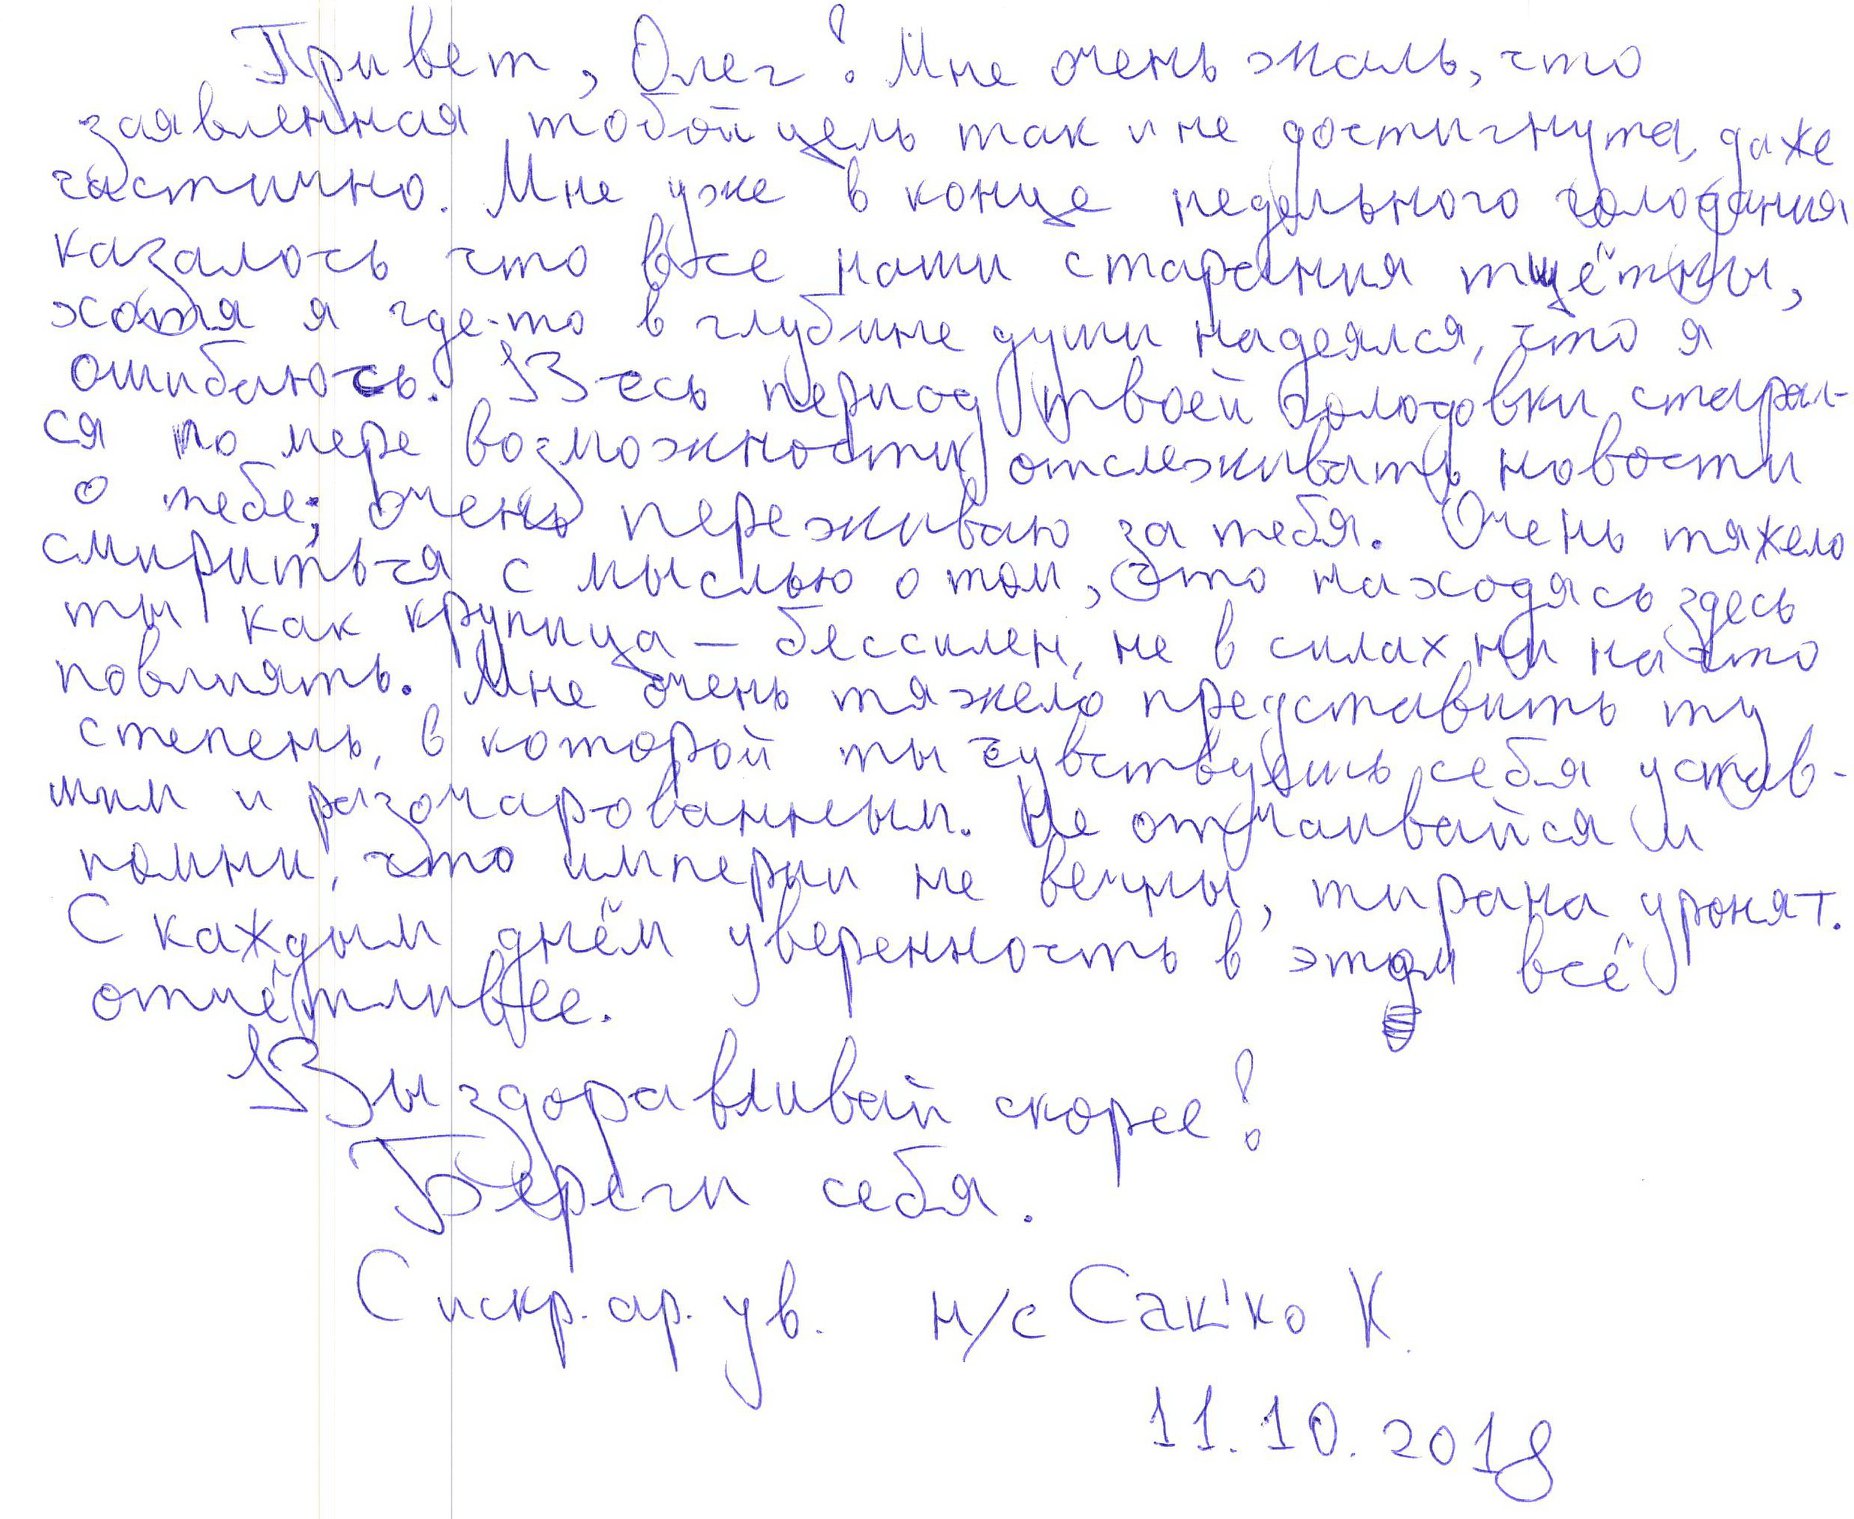 Привет, Олег! Мне очень жаль, что
заявленная тобой цель так и не достигнута, даже
частично. Мне уже в конце недельного голодания
казалось что все наши старания тщётны,
хотя я где-то в глубине души надеялся, что я
ошибаюсь. Весь период твоей голодовки старал-
ся по мере возможности отслеживать новости
о тебе; очень переживаю за тебя. Очень тяжело
смириться с мыслью о том, что находясь здесь
ты как крупица – бессилен, не в силах ни на что
повлиять. Мне очень тяжело представить ту
степень, в которой ты чувствуешь себя устав-
шим и разочарованным. Не отчаивайся и
помни, что империи не вечны, тирана уронят.
С каждым днём уверенность в этом всё
отчётливее.
Выздоравливай скорее!
Береги себя.
С искр. ар. ув. н/с Сакко К.
11.10.2018